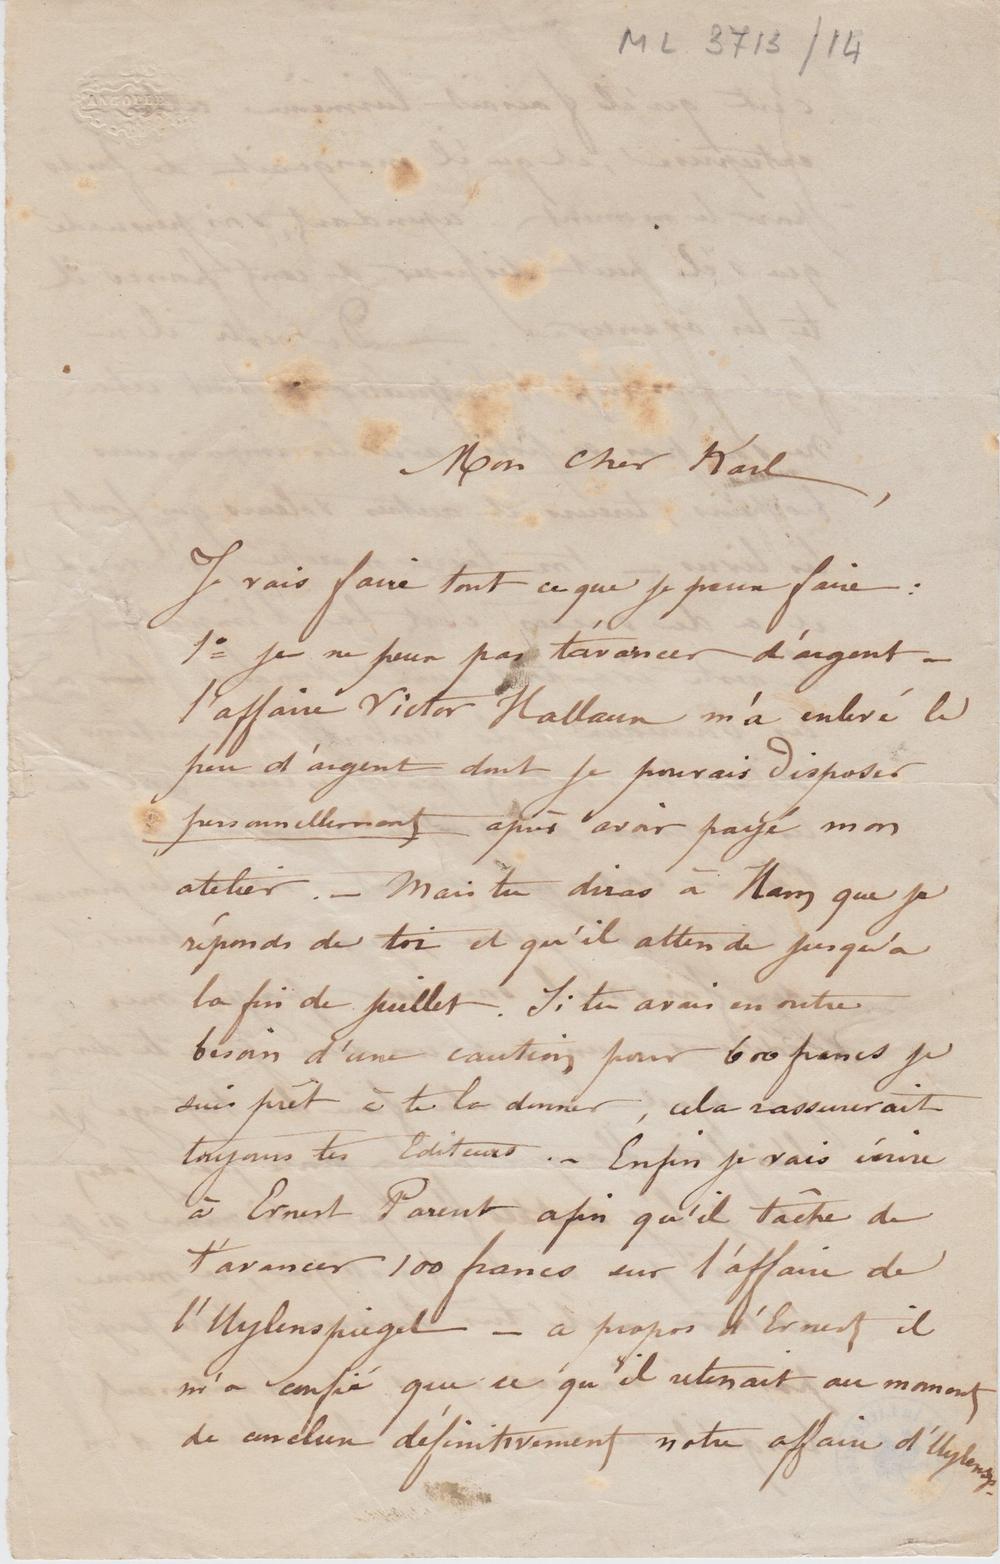 ML 3713/14
Mon cher Karl,
Je vais faire tout ce que je peux faire :
1º je ne peux pas t'avancer d'argent —
l'affaire Victor Hallaux m'a enlevé le
peu d'argent dont je pouvais disposer
personnellement après avoir payé mon
atelier. — Mais tu diras à que je
réponds de toi et qu'il attende jusqu'a
la fin de juillet. Si tu avais en outre
besoin d'une caution pour 600 francs je
suis prêt à te la donner, cela rassurerait
toujours tes Editeurs. — Enfin je vais écrire
à Ernest Parent afin qu'il tâche de
t'avancer 100 francs sur l'affaire de
l'Uylenspiegel — a propos d'Ernest il
m'a confié que ce qu'il retenait au moment
de conclure définitivement notre affaire d'Uylensp-